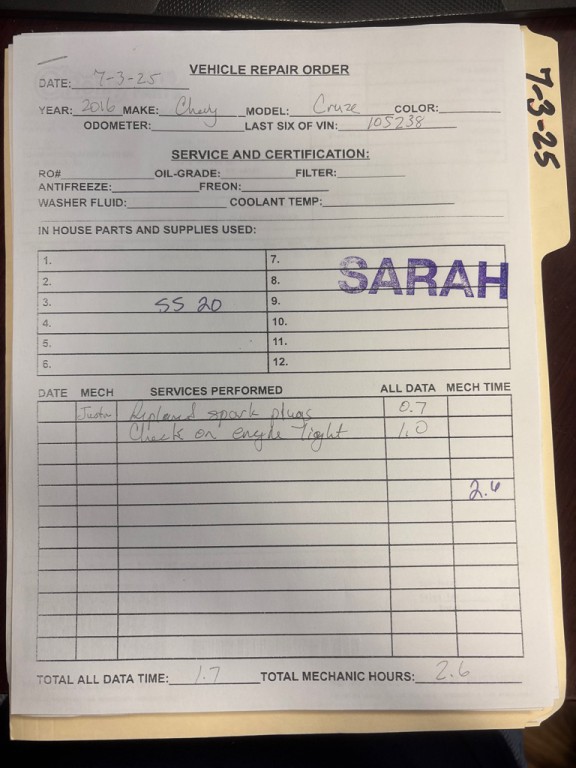 7-3-25
VEHICLE REPAIR ORDER
DATE: 7-3-25
YEAR: 2016 MAKE: Chevy MODEL: Cruze COLOR:
ODOMETER: LAST SIX OF VIN: 105238
SERVICE AND CERTIFICATION:
RO# OIL-GRADE: FILTER:
ANTIFREEZE: FREON:
WASHER FLUID: COOLANT TEMP:
IN HOUSE PARTS AND SUPPLIES USED:
1. 7.
2. 8. SARAH
3. SS 20 9.
4. 10.
5. 11.
6. 12.
DATE MECH SERVICES PERFORMED ALL DATA MECH TIME
Justin Replaced spark plugs 0.7
Check on engine light 1.0
2.6
TOTAL ALL DATA TIME: 1.7 TOTAL MECHANIC HOURS: 2.6